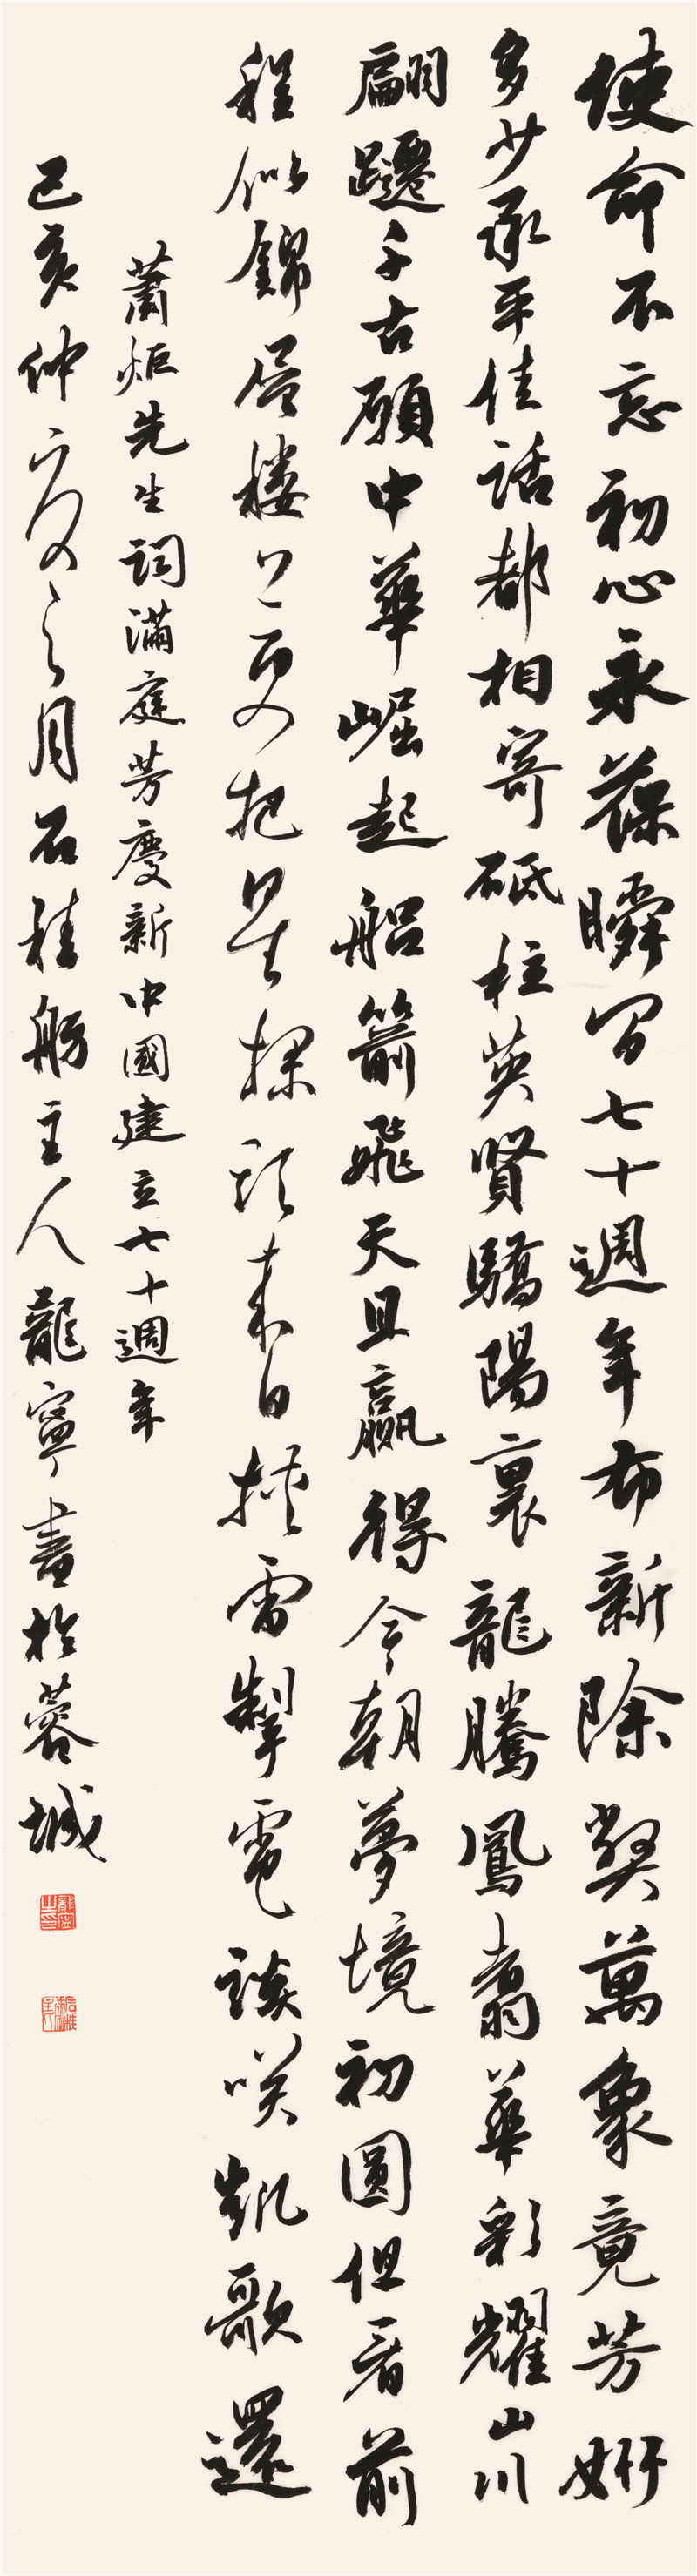 使命不忘初心永葆瞬間七十週年布新除弊萬象竟芳妍
多少承平佳話都相寄砥柱英賢驕陽裏龍騰鳳翥華彩耀山川
翩躚千古願中華崛起船箭飛天且贏得今朝夢境初圓但看前
程似錦層樓上更把星探頤來日挾雷掣電談笑凱歌還
蕭炬先生詞滿庭芳慶新中國建立七十週年
己亥仲夏之月石桂舫主人龍寧書於蓉城